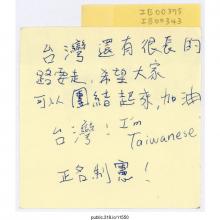 IB00375
IB00343
台灣還有很長的
路要走，希望大家
可以團結起來，加油
台灣！I'm
Taiwanese.
正名制憲！
public.318.io/11550